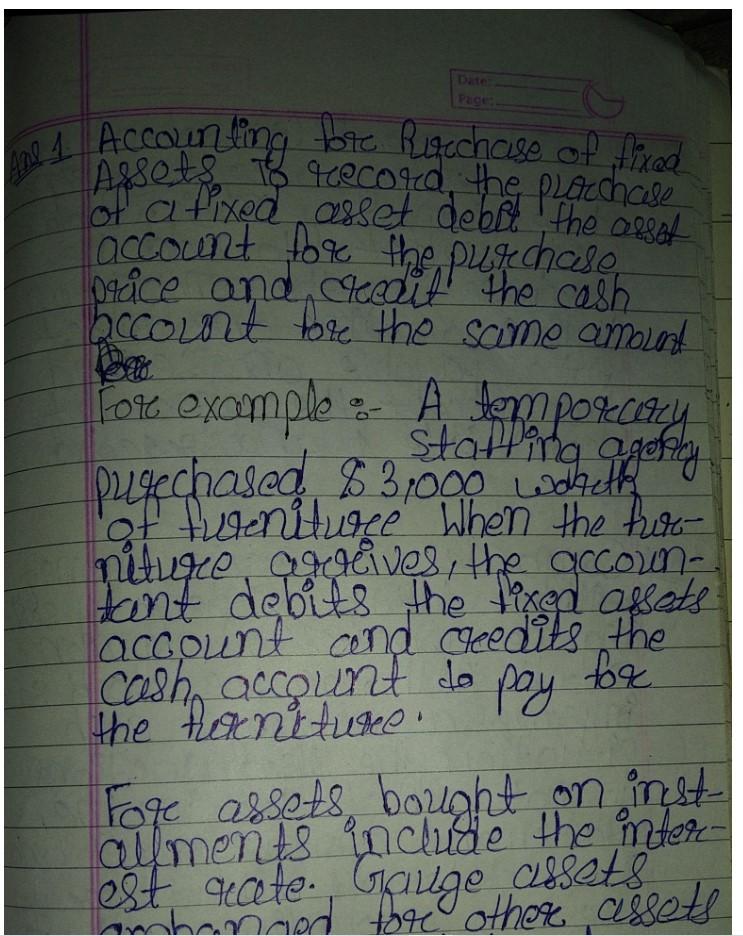 Date:
Page:
Ans 1 Accounting for Purchase of fixed
Assets To record, the purchase
of a fixed asset debit the asset
account for the purchase
price and credit the cash
account for the same amount
For example :- A temporary
staffing agency
purchased $3,000 worth
of furniture When the fur-
niture arrives, the accoun-
tant debits the fixed assets
account and credits the
cash account to pay for
the furniture.
For assets bought on inst-
allments include the inter-
est rate. Gauge assets
for other assets